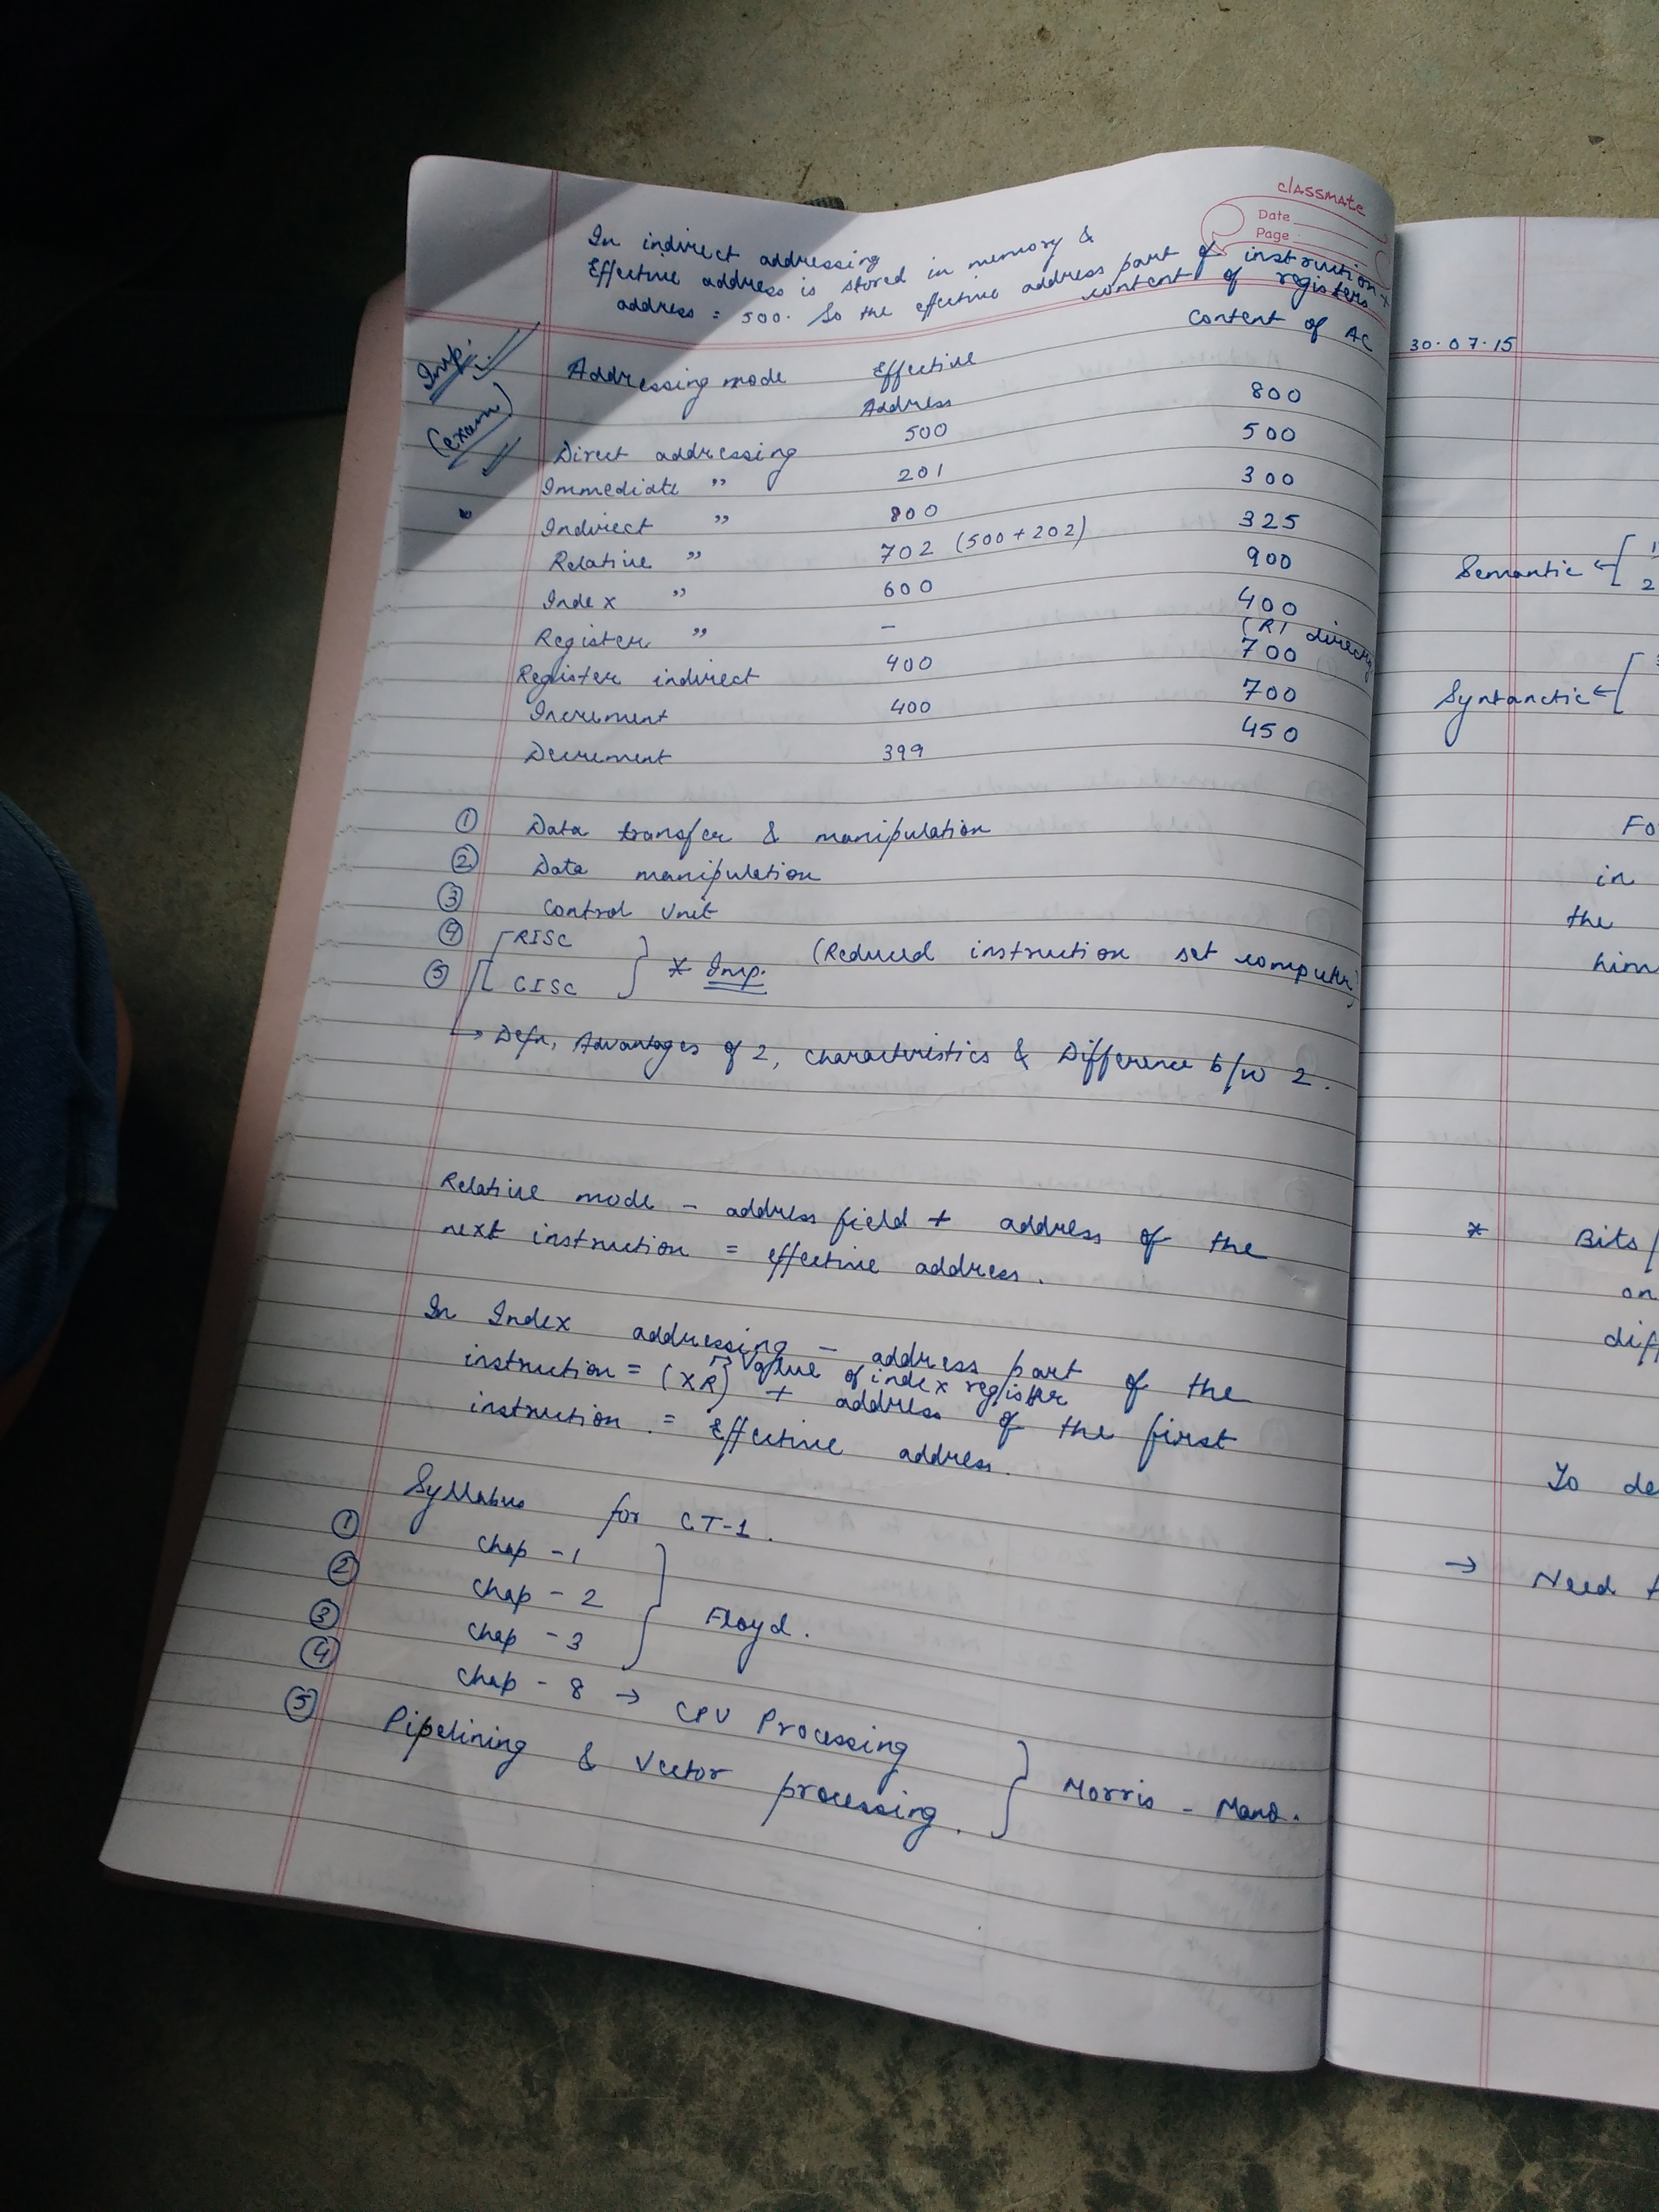 classmate
Date
Page
In indirect addressing
Effective address is stored in memory &
address = 500. So the effective address part of instruction +
content of registers
Imp.
(exam)
Addressing mode Effective Address Content of AC
Direct addressing 500 800
Immediate " 201 500
Indirect " 800 300
Relative " 702 (500 + 202) 325
Index " 600 900
Register " – 400
(R1 directly
Register indirect 400 700
Increment 400 700
Decrement 399 450
① Data transfer & manipulation
② Data manipulation
③ Control Unit
④ RISC
⑤ CISC
* Imp. (Reduced instruction set computer)
→ Defn, Advantages of 2, characteristics & Difference b/w 2.
Relative mode – address field + address of the
next instruction = effective address.
In Index addressing – address part of the
→ Value of index register
instruction = (XR) + address of the first
instruction = Effective address.
Syllabus for CT-1.
① Chap - 1
② Chap - 2
③ Chap - 3
Floyd.
④ Chap - 8 → CPU Processing
⑤ Pipelining & Vector processing.
Morris - Mano.
30.07.15
Semantic ← 1
2
Syntanctic ←
Fo
in
the
him
* Bits/
on
diff
To de
→ Need